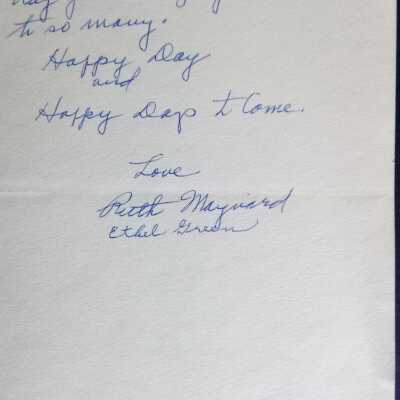 to so many.
Happy Day
and
Happy Days to Come.
Love
Ruth Maynard
Ethel Green